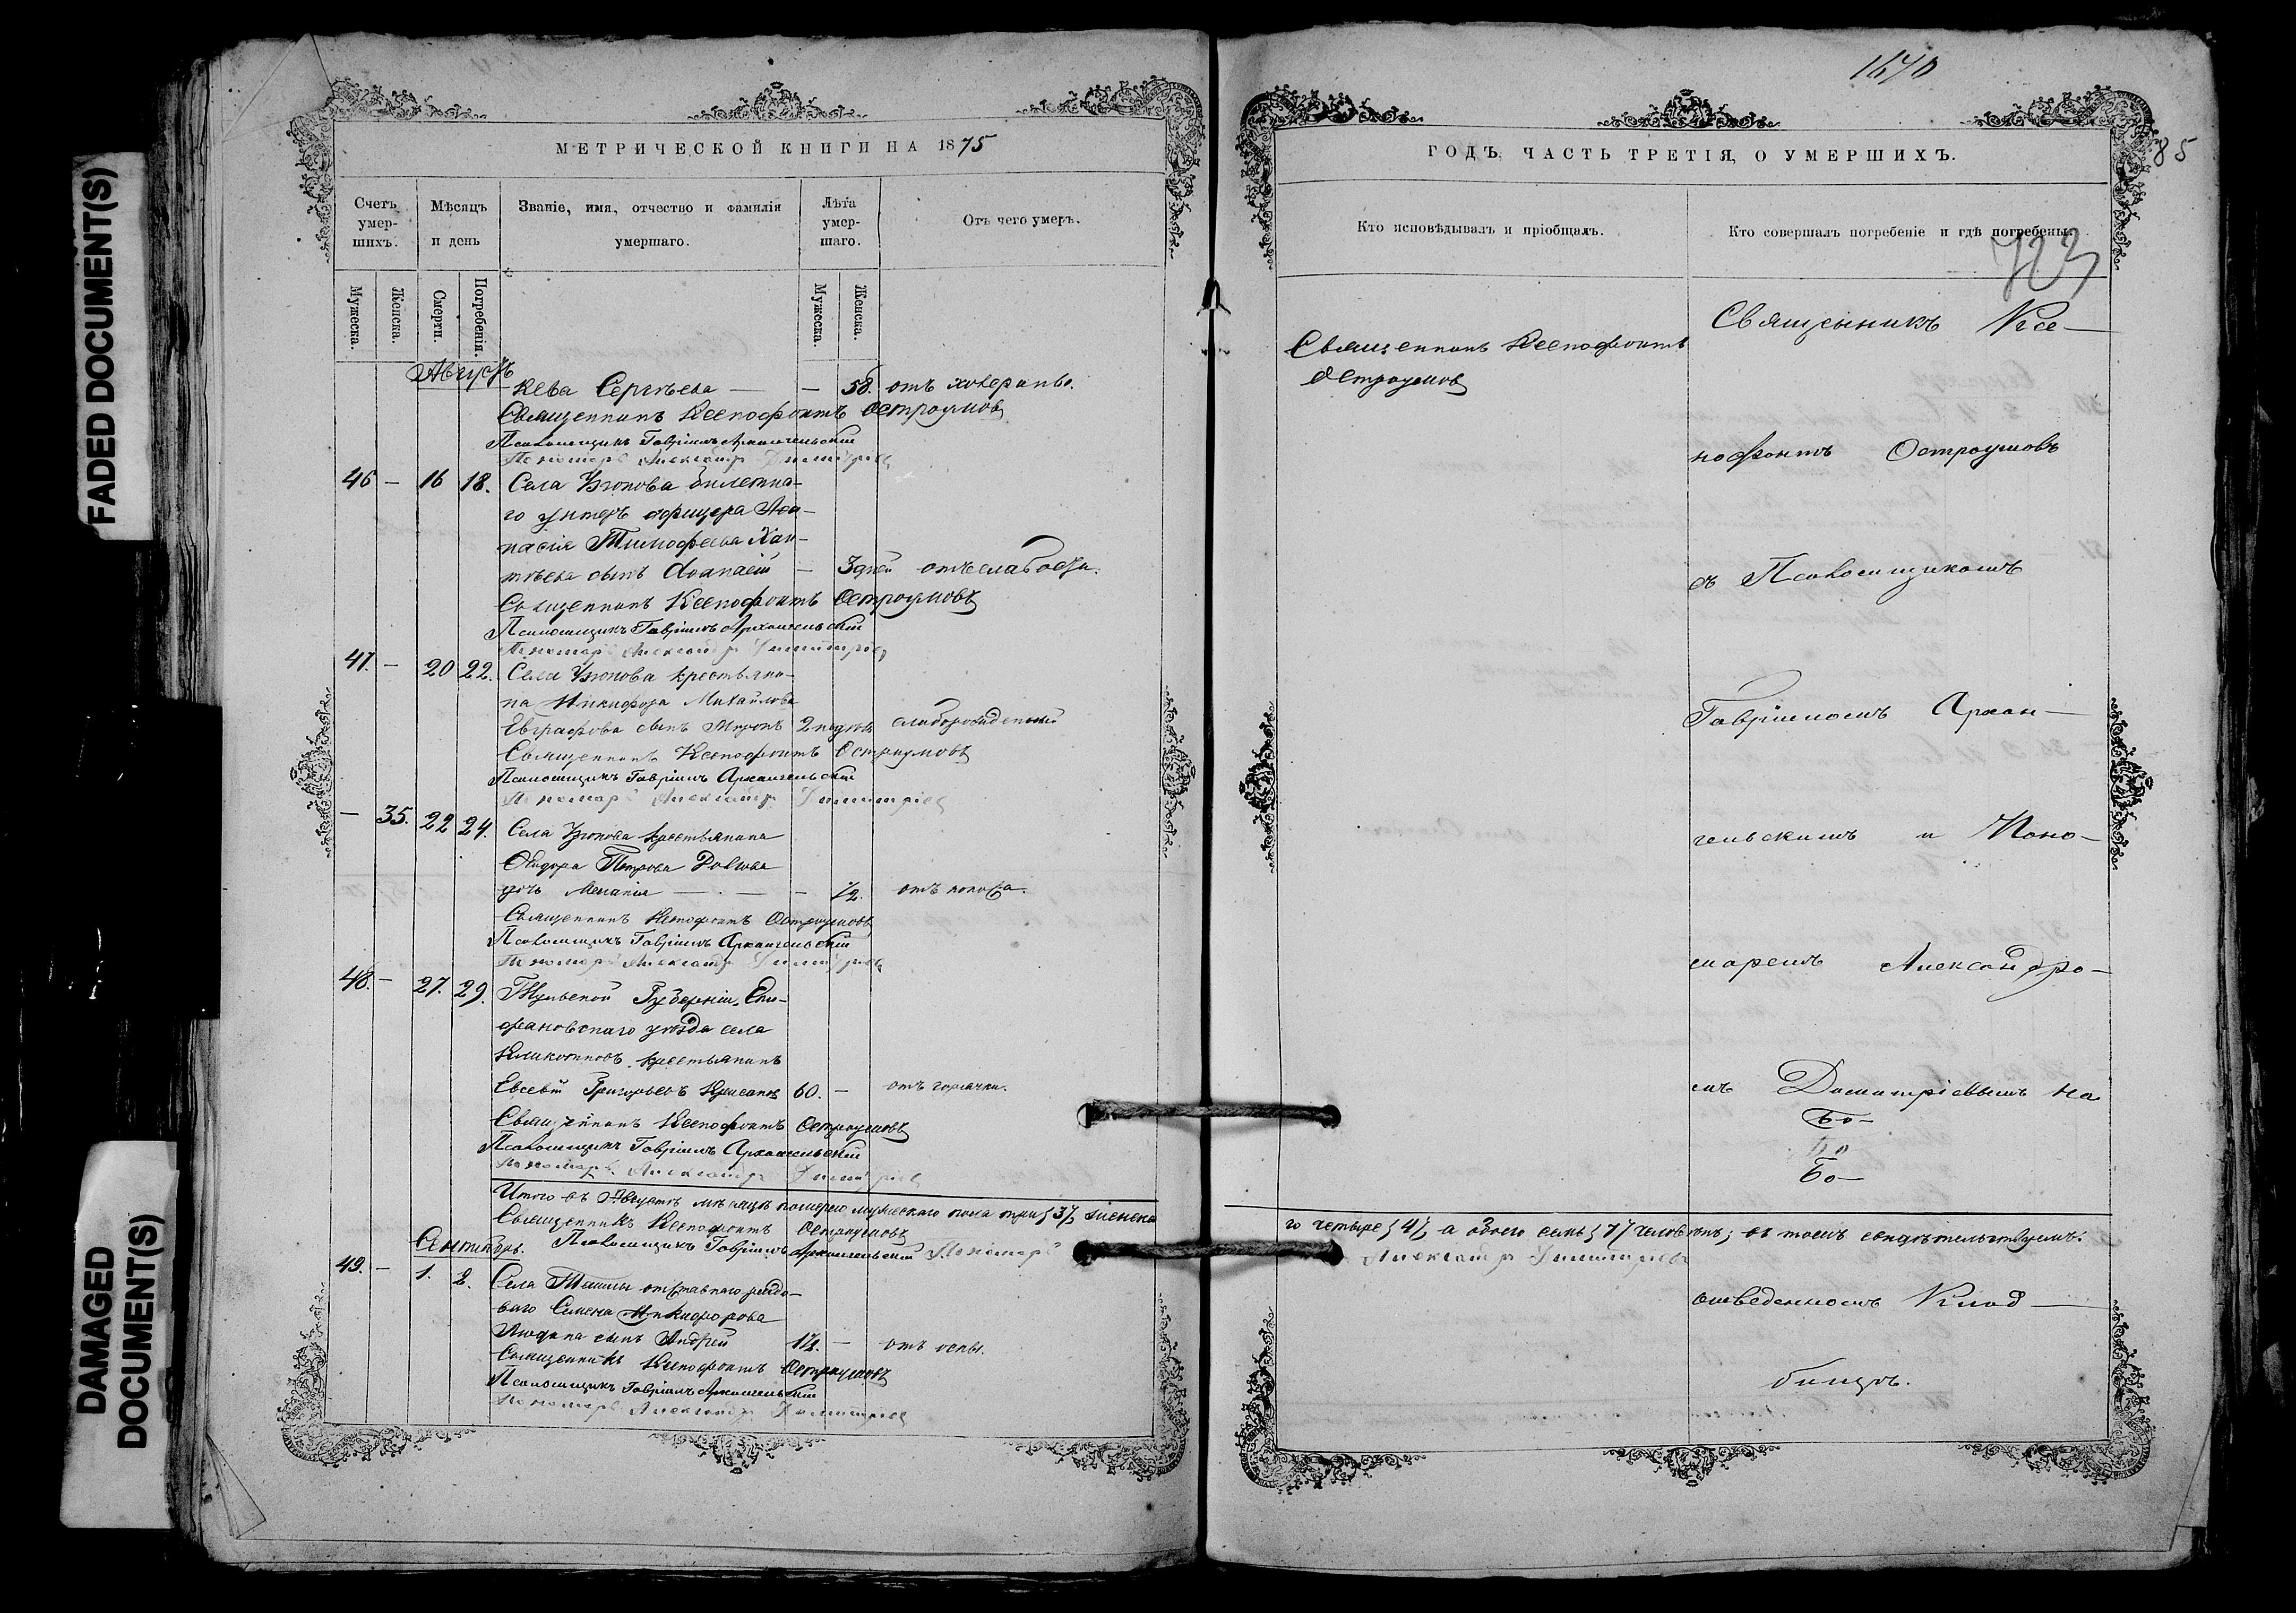 FADED DOCUMENT(S)
DAMAGED
DOCUMENT(S)
МЕТРИЧЕСКОЙ КНИГИ НА 1875
Счетъ
умер-
шихъ.
Мѣсяцъ
и день
Званіе, имя, отчество и фамилія
умершаго.
Лѣта
умер-
шаго.
Отъ чего умеръ.
Мужеска.
Женска.
Смерти.
Погребенія.
Мужеска.
Женска.
Августъ
кева Сергѣева — — 58. отъ холеры
Священникъ Ксенофонтъ Остроумовъ
Псаломщикъ Гавріилъ Архангельскій
Пономарь Александръ Димитріевъ
46 — 16 18. Села Утопова билетна-
го унтеръ офицера Аѳа-
насія Тимофеева Хан-
сынъ — 3 дней отъ слабости.
Священникъ Ксенофонтъ Остроумовъ
Псаломщикъ Гавріилъ Архангельскій
Пономарь Александръ Димитріевъ
47. — 20 22. Села крестьяни-
на Никифора Михайлова
Евграфова сынъ Миронъ 2 недѣль
Священникъ Ксенофонтъ Остроумовъ
Псаломщикъ Гавріилъ Архангельскій
Пономарь Александръ Димитріевъ
— 35. 22 24. Села крестьянина
Ѳедора Петрова
дочь Меланія — — 1/2. отъ поноса.
Священникъ Ксенофонтъ Остроумовъ
Псаломщикъ Гавріилъ Архангельскій
Пономарь Александръ Димитріевъ
48. — 27. 29. Тульской Губерніи, Епи-
фановскаго уѣзда села
крестьянинъ
Евсевій Григорьевъ 60. — отъ горячки.
Священникъ Ксенофонтъ Остроумовъ
Псаломщикъ Гавріилъ Архангельскій
Пономарь Александръ Димитріевъ
Итого въ Августѣ мѣсяцѣ померло мужескаго пола три {3}, женска
Священникъ Ксенофонтъ Остроумовъ
Сентябрь. Псаломщикъ Гавріилъ Архангельскій Пономарь
49. — 1. 2. Села Ташлы отставнаго рядо-
ваго Семена Никифорова
сынъ Андрей 1 1/2. — отъ оспы.
Священникъ Ксенофонтъ Остроумовъ
Псаломщикъ Гавріилъ Архангельскій
Пономарь Александръ Димитріевъ
1670
85
ГОДЪ, ЧАСТЬ ТРЕТІЯ, О УМЕРШИХЪ.
Кто исповѣдывалъ и пріобщалъ.
Кто совершалъ погребеніе и гдѣ погребены.
723
Священникъ Ксенофонтъ
Остроумовъ
Священникъ Ксе-
нофонтъ Остроумовъ
съ Псаломщикомъ
Гавріиломъ Архан-
гельскимъ и Поно-
маремъ Александро-
мъ Димитріевымъ на
Бо-
Бо
Бо-
го четыре {4}, а обоего семь {7} человѣкъ; въ томъ свидѣтельствуемъ:
Александръ Димитріевъ
отведенномъ Клад-
бищѣ.